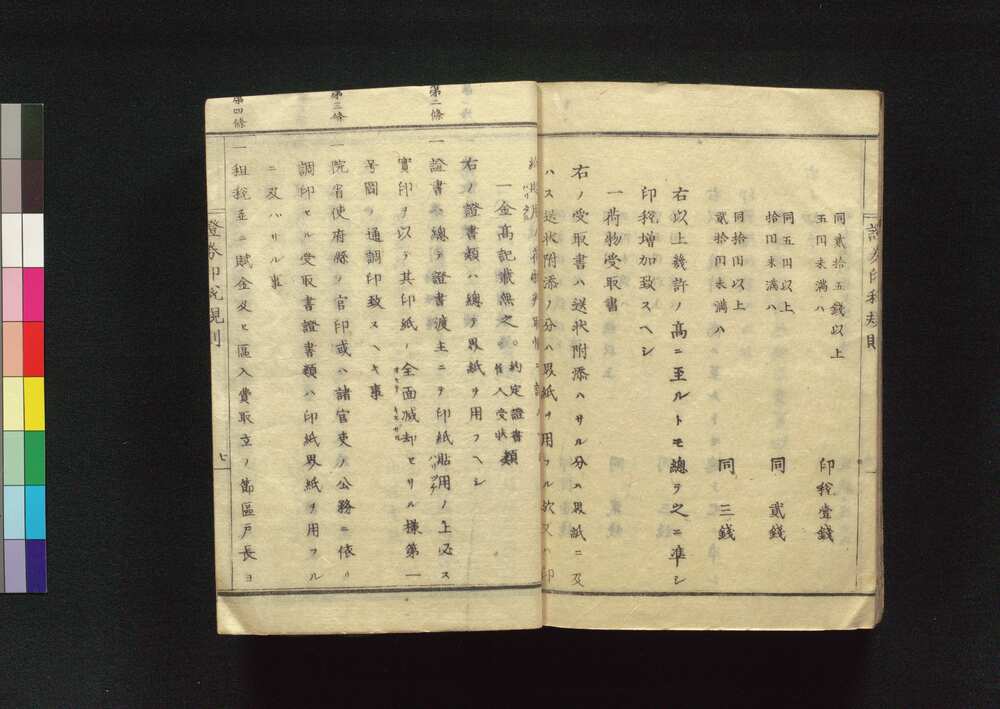 證券印税規則
同貳拾五錢以上
五円未満ハ
印税壹錢
同五円以上
拾円未満ハ
同 貳錢
同拾円以上
貳拾円未満ハ
同 三錢
右以上幾許ノ高ニ至ルトモ總テ之ニ準シ
印税増加致スヘシ
一荷物受取書
右ノ受取書ハ送状附添ハサル分ハ界紙ニ及
ハス送状附添ノ分ハ界紙ヲ用フル欤又ハ印
一金高記載無之
約定證書類
人受状
右ノ證書類ハ總テ界紙ヲ用フヘシ
第二條
一證書ハ總テ證書渡主ニテ印紙貼用ノ上必ス
實印ヲ以テ其印紙ノ全面滅却セサル様第一
号圖ノ通調印致スヘキ事
第三條
一院省使府縣ノ官印或ハ諸官吏ノ公務ニ依リ
調印セル受取書證書類ハ印紙界紙ヲ用フル
ニ及ハサル事
第四條
一租税並ニ賦金及ヒ區入費取立ノ節區戸長ヨ
證券印税規則
七